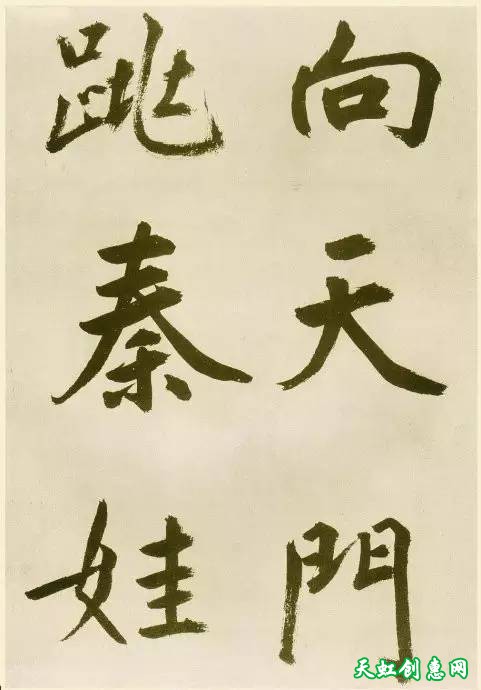 向天門
跳秦娃
天虹创意网